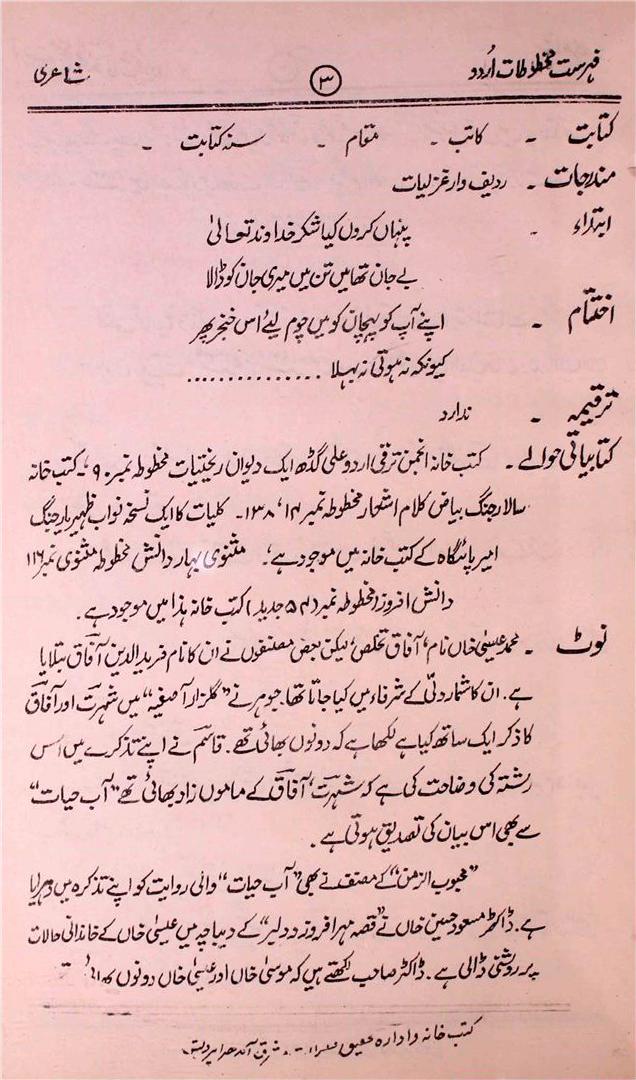 فہرست مخطوطات اُردو ۳ شاعری
کتابت - کاتب - مقام - سنہ کتابت -
مندرجات - ردیف وار غزلیات
ابتداء - پنہاں کروں کیا شکر خداوند تعالیٰ
بے جان تھا میں تن میں میری جان کو ڈالا
اختتام - اپنے آپ کو پہچان کو میں چوم لیئے اس خنجر پھر
کیونکہ نہ ہوتی نہ بہلا ...............
ترقیمہ - ندارد
کتابیاتی حوالے - کتب خانہ انجمن ترقی اردو علی گڈھ ایک دیوان ریختیات مخطوطہ نمبر ۹۰، کتب خانہ
سالار جنگ بیاض کلام اشعار مخطوطہ نمبر ۱۴، ۱۳۸ - کلیات کا ایک نسخہ نواب ظہیر یار جنگ
امیر پائگاہ کے کتب خانہ میں موجود ہے، مثنوی بہار دانش مخطوطہ مثنوی نمبر ۱۱۶
دانش افروز (مخطوطہ نمبر ۵۴ جدید) کتب خانہ ہذا میں موجود ہے .
نوٹ - محمد عیسیٰ خاں نام، آفاق تخلص، لیکن بعض مصنفوں نے ان کا نام فرید الدین آفاق بتلایا
ہے. ان کا شمار دلّی کے شرفاء میں کیا جاتا تھا. جوہر نے "گلزار آصفیہ" میں شہرت اور آفاق
کا ذکر ایک ساتھ کیا ہے لکھا ہے کہ دونوں بھائی تھے. قاسم نے اپنے تذکرے میں اس
رشتہ کی وضاحت کی ہے کہ شہرت، آفاق کے ماموں زاد بھائی تھے "آب حیات"
سے بھی اس بیان کی تصدیق ہوتی ہے .
"محبوب الزمن" کے مصنف نے بھی "آب حیات" والی روایت کو اپنے تذکرہ میں دہرایا
ہے. ڈاکٹر مسعود حسین خاں نے "قصہ مہر افروز و دلبر" کے دیباچہ میں عیسیٰ خاں کے خاندانی حالات
پر روشنی ڈالی ہے. ڈاکٹر صاحب لکھتے ہیں کہ موسیٰ خاں اور عیسیٰ خاں دونوں بھائی
کتب خانہ و ادارہ تحقیق شرقی آندھرا پردیش